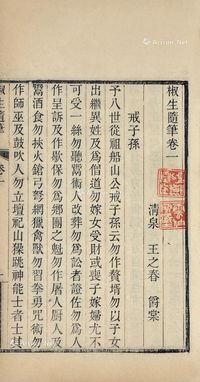 椒生隨筆卷一
清泉 王之春 爵棠
戒子孫
予八世從祖船山公戒子孫云勿作贅壻勿以子女
出繼異姓及爲僧道勿嫁女受財或喪子嫁婦尤不
可受一絲勿聽鬻術人改葬勿爲訟者證佐勿爲人
作呈訴及作歇保勿爲鄉團之魁勿作屠人厨人及
鬻酒食勿挾火鎗弓弩網獵禽獸勿習拳勇咒術勿
作師巫及鼓吹人勿立壇祀山猱跳神能士者士其
椒生隨筆 卷一